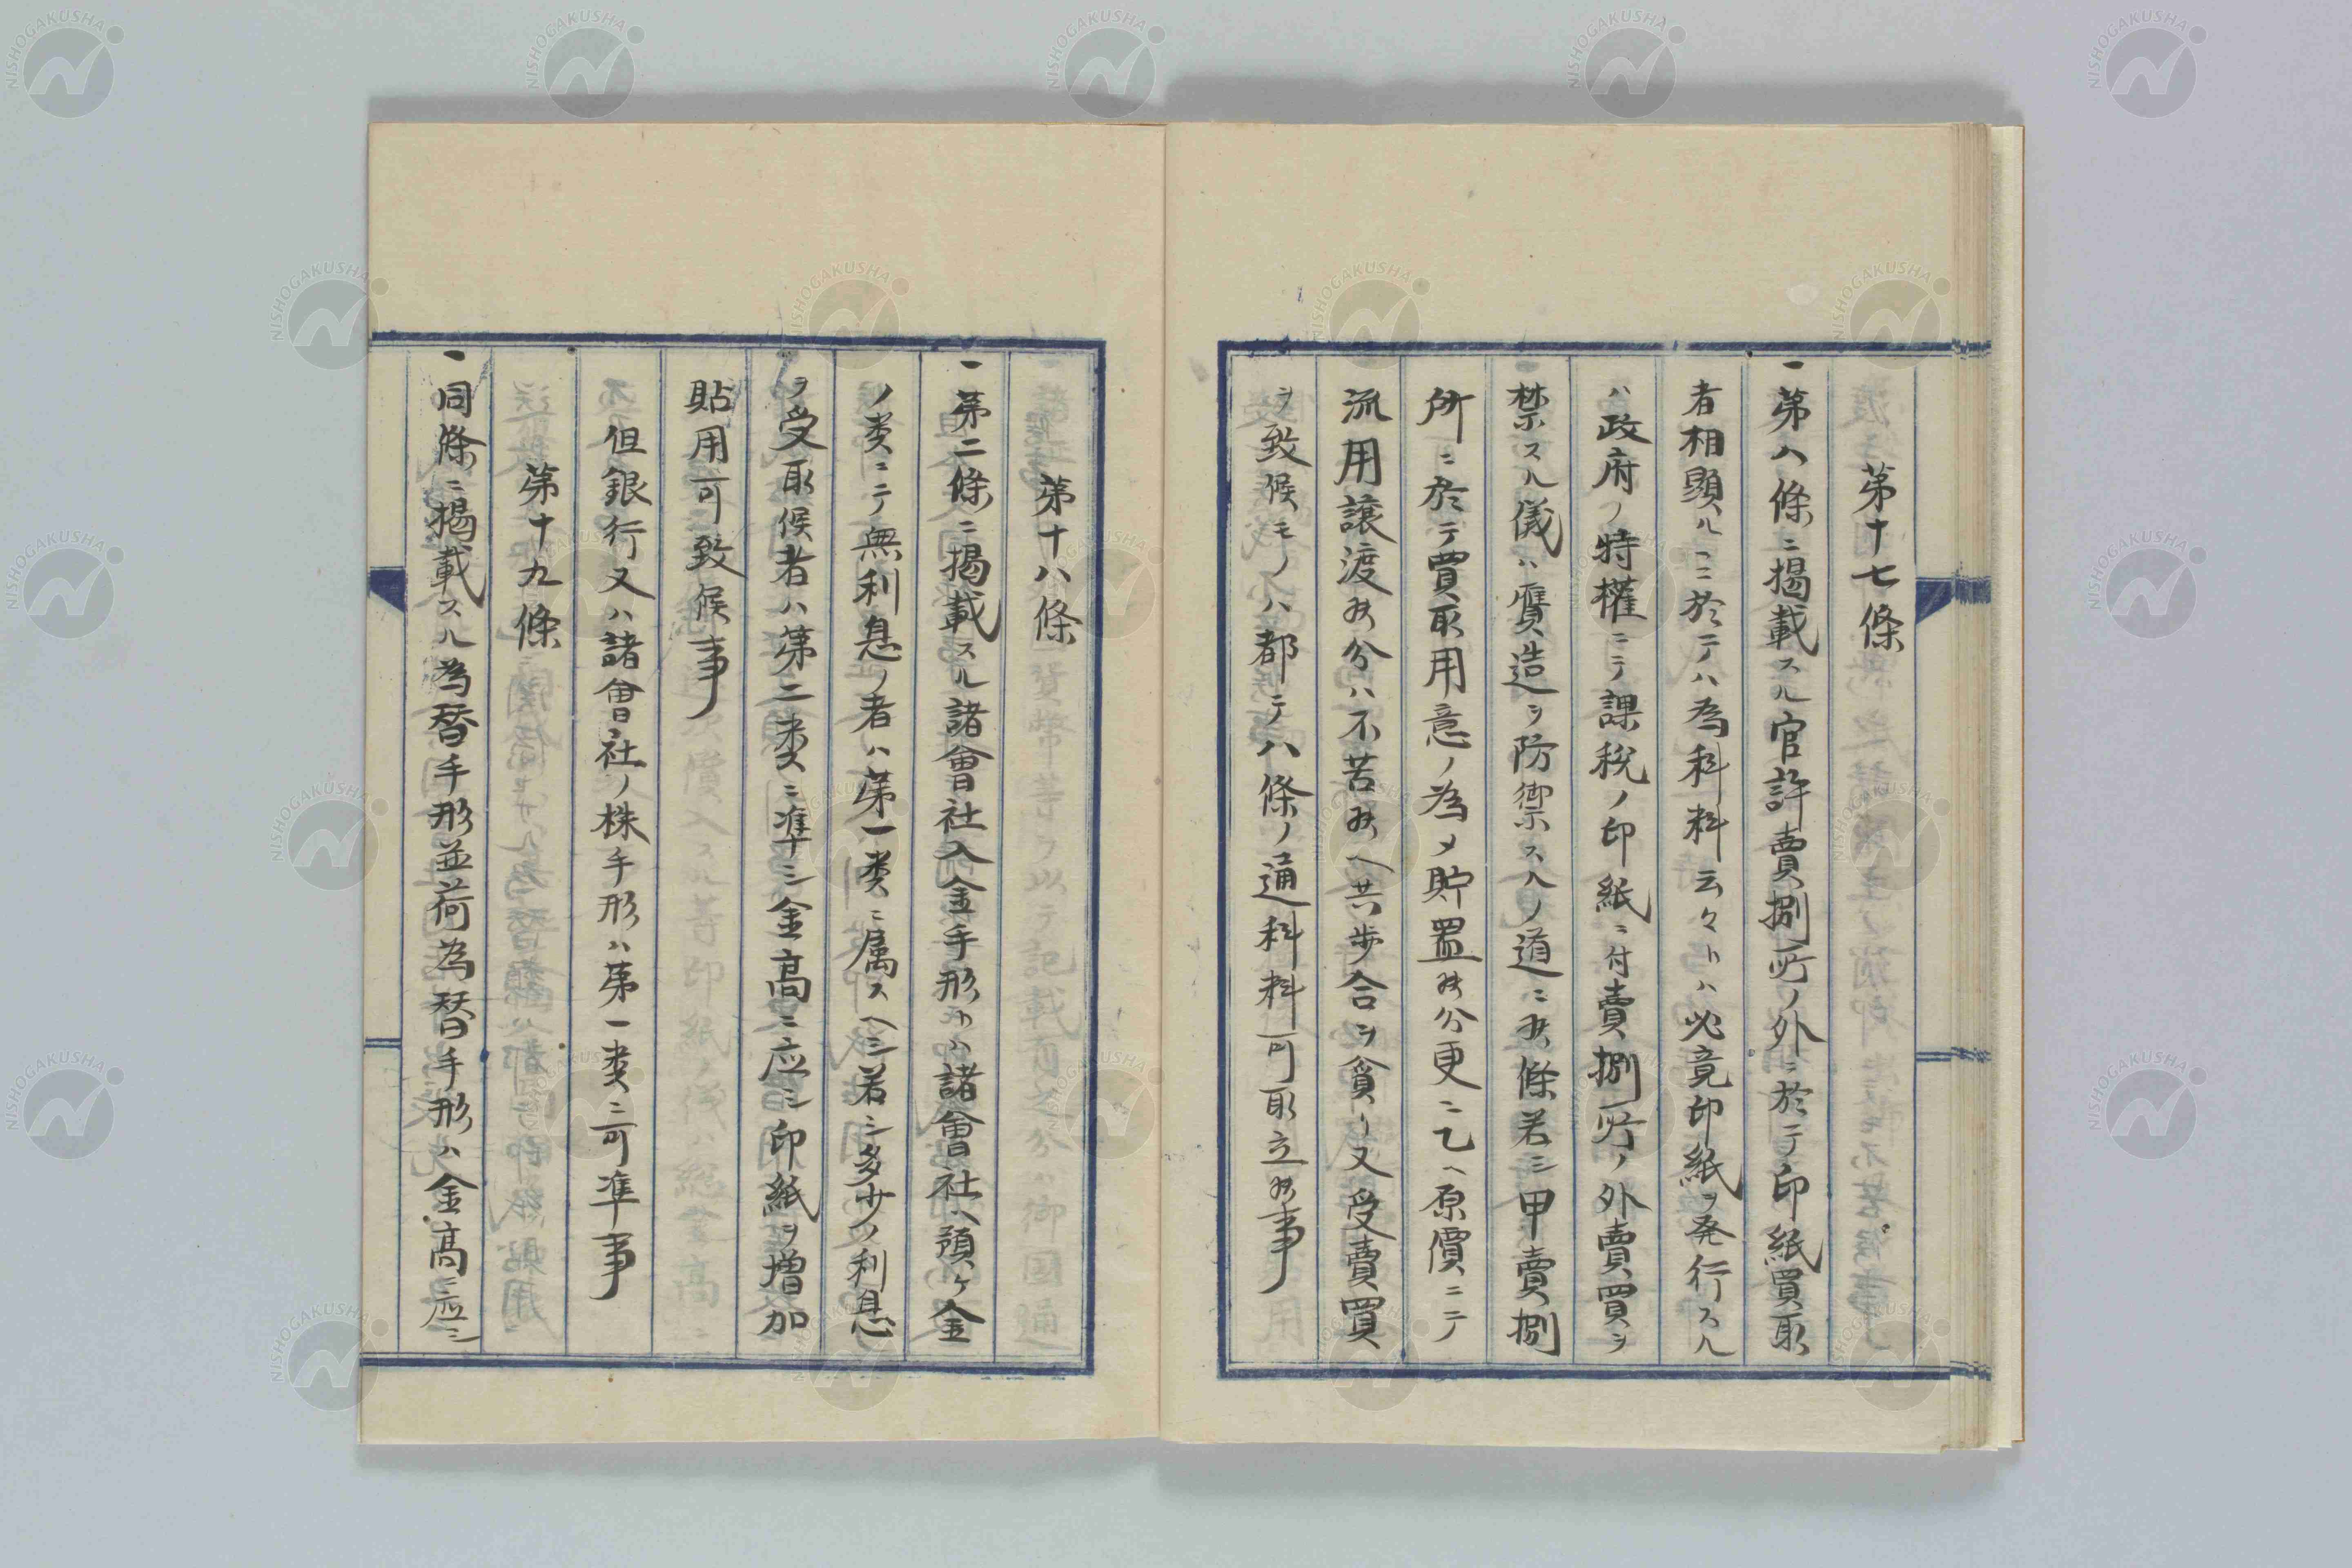 第十七條
一第八條ニ掲載スル官許賣捌所ノ外ニ於テ印紙買取
者相顕ルヽニ於テハ為科料云々トハ必竟印紙ヲ発行スル
ハ政府ノ特權ニテ課税ノ印紙ニ付賣捌所ノ外賣買ヲ
禁スル儀ハ贋造ヲ防禦スルノ道ニ候條若シ甲賣捌
所ニ於テ買取用意ノ為メ貯置候分更ニ乙ヘ原價ニテ
流用譲渡候分ハ不苦候ヘ共歩合ヲ貪リ又受賣買
ヲ致候モノハ都テ八條ノ通科料可取立候事
第十八條
一第二條ニ掲載スル諸會社入金手形トハ諸會社ヘ預ケ金
ノ类ニテ無利息ノ者ハ第一类ニ属スヘシ若シ多少ノ利息
ヲ受取候者ハ第二类ニ準シ金高ニ應シ印紙ヲ増加
貼用可致候事
但銀行又ハ諸會社ノ株手形ハ第一类ニ可準事
第十九條
一同條ニ掲載スル為替手形並荷為替手形ハ金高ニ應シ
NISHOGAKUSHA